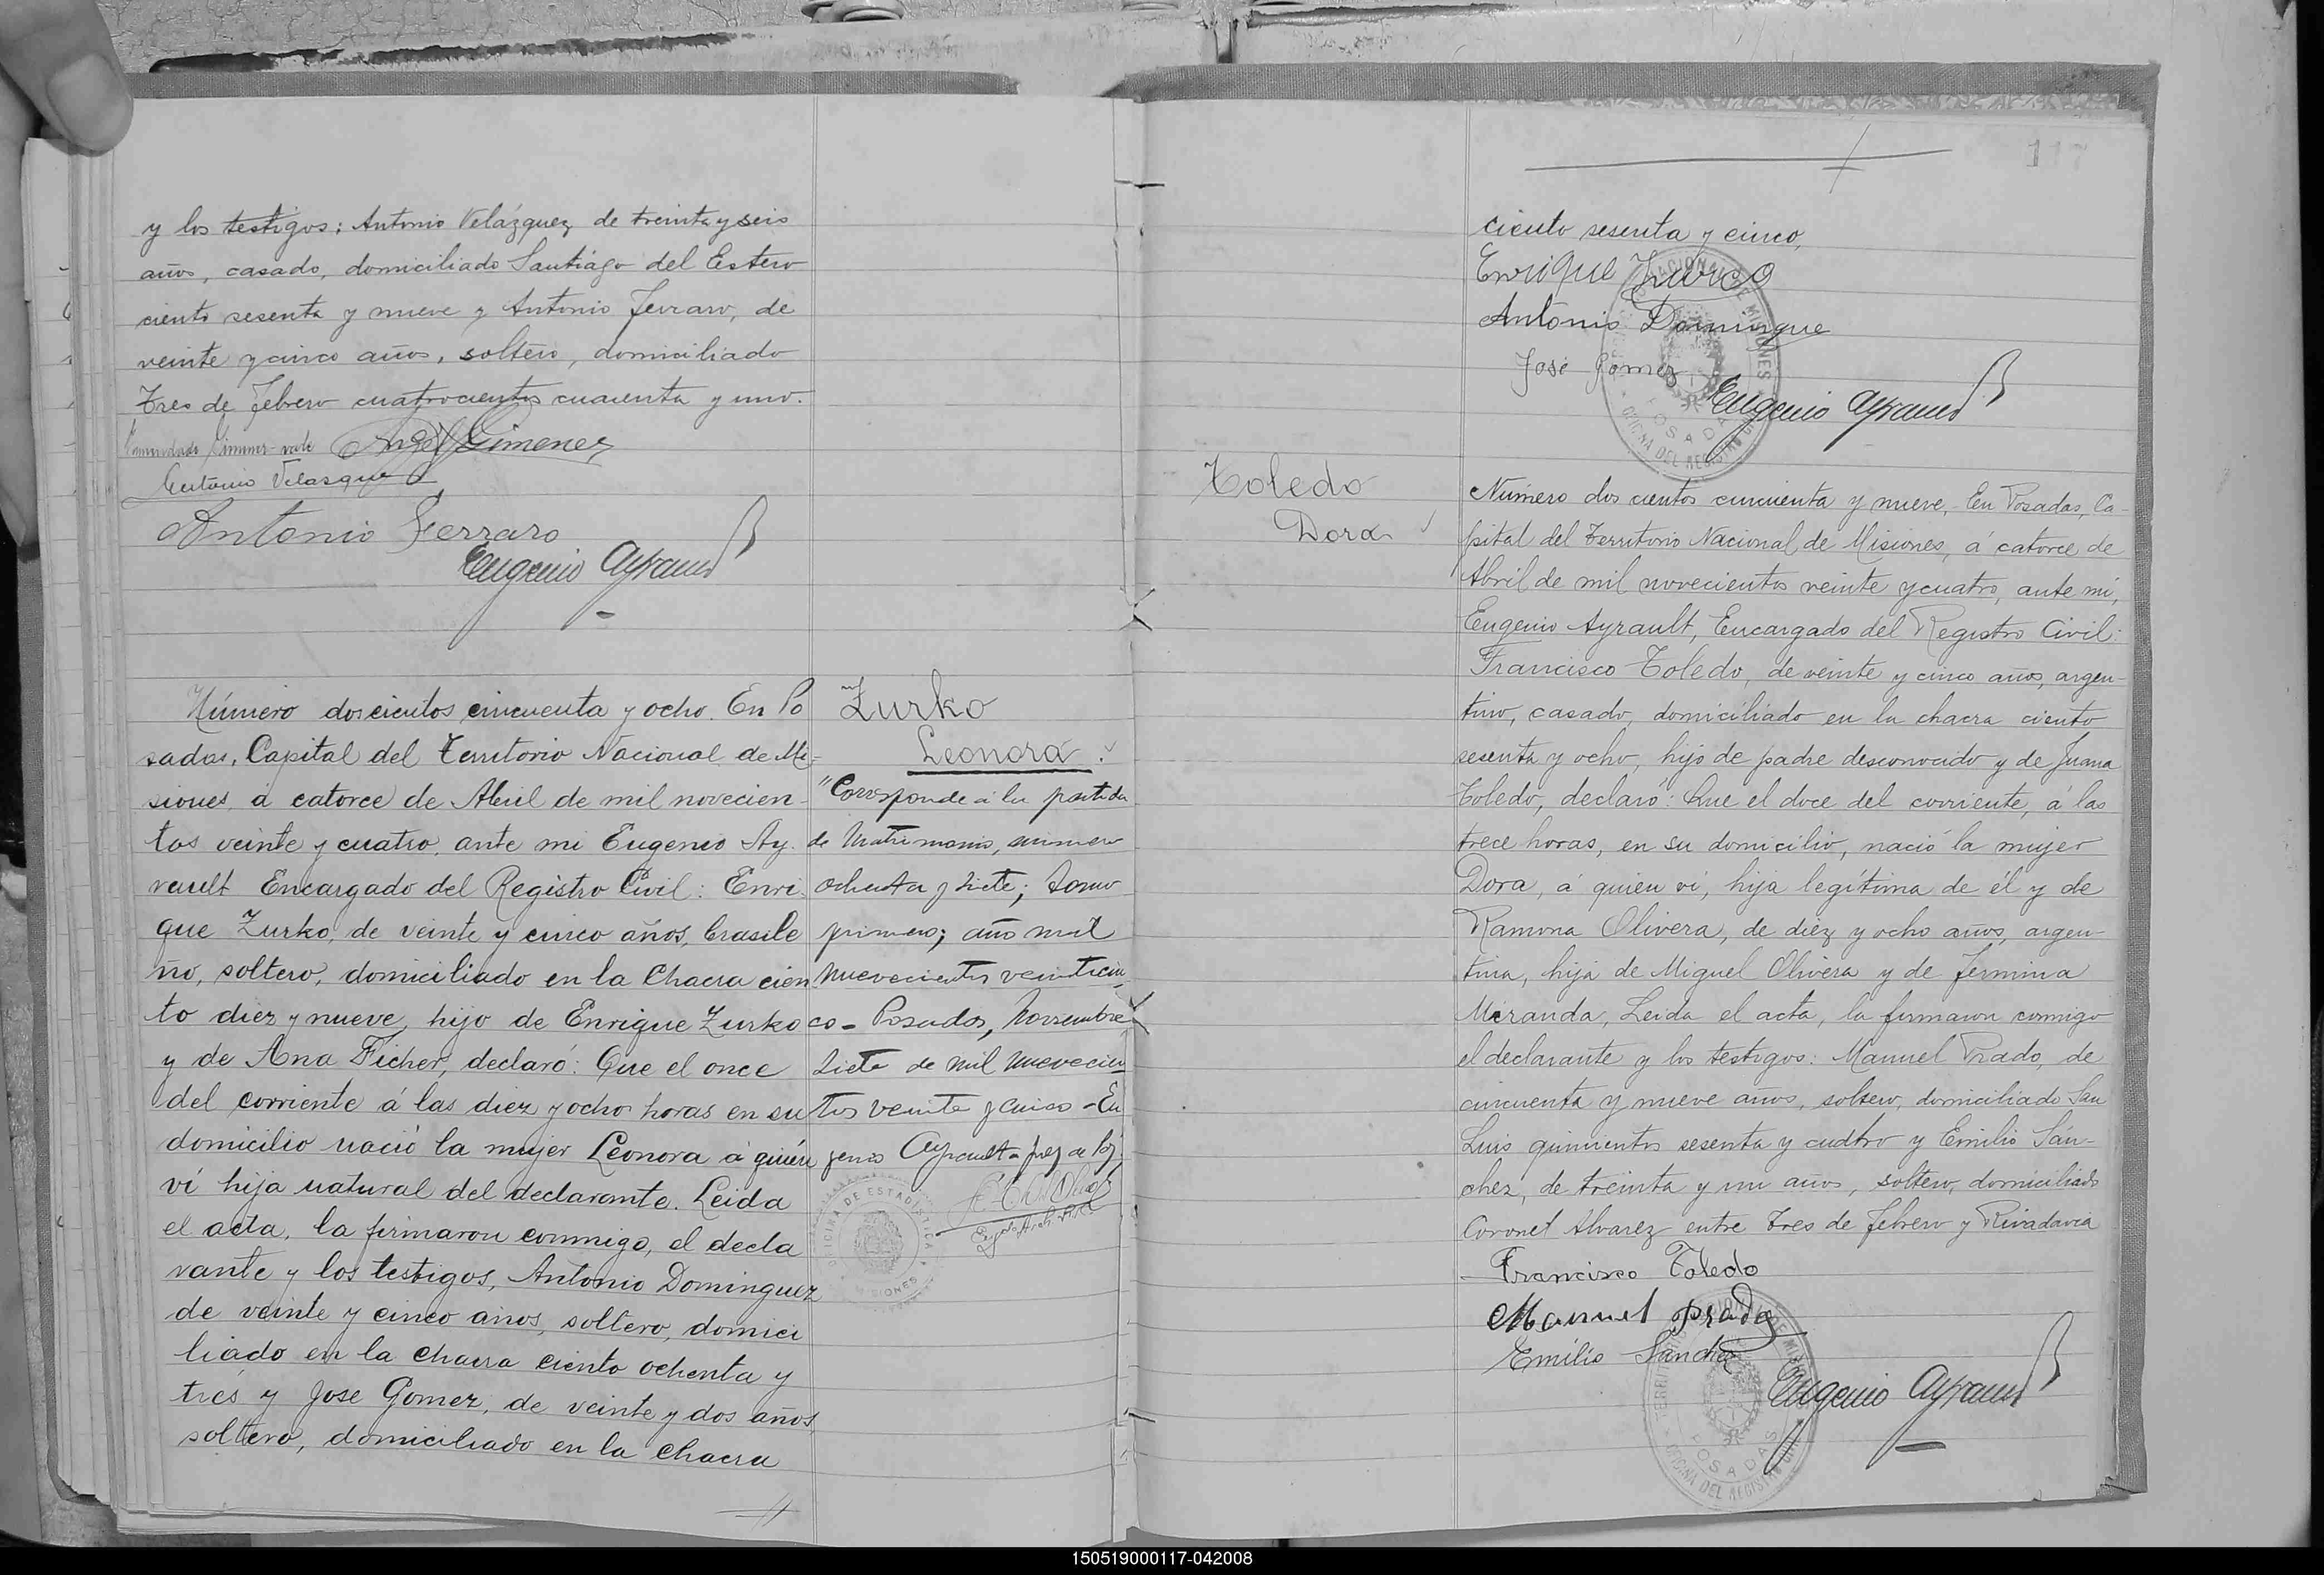 y los testigos; Antonio Velázquez, de treinta y seis
años, casado, domiciliado Santiágo del Estero
ciento sesenta y nueve y Antonio Ferraro, de
veinte y cinco años, soltero, domiciliado
Tres de Febrero cuatrocientos cuarenta y uno.
Enmendado Gimenez vale Angel Gimenez
Antonio Velasque
Antonio Ferraro
Eugenio Ayrault
Número doscientos cincuenta y ocho. En Po
sadas, Capital del Territorio Nacional de Mi-
siones, á catorce de Abril de mil novecien-
tos veinte y cuatro, ante mi Eugenio Ay-
rault Encargado del Registro Civil: Enri-
que Zurko, de veinte y cinco años, brasile
ño, soltero, domiciliado en la Chacra cien
to diez y nueve, hijo de Enrique Zurko
y de Ana Ficher, declaró: Que el once
del corriente á las diez y ocho horas en su
domicilio nació la mujer Leonora á quién
ví hija natural del declarante. Leida
el acta, la firmaron conmigo, el decla
rante y los testigos, Antonio Dominguez
de veinte y cinco años, soltero, domici
liado en la chacra ciento ochenta y
tres y Jose Gomez, de veinte y dos años,
soltero, domiciliado en la Chacra
Zurko
Leonora
"Corresponde á la partida
de Matrimonio, número
ochenta y siete; tomo
primero; año mil
nuevecientos veinticin
co - Posadas, Noviembre
siete de mil nuevecien
tos veinte y cinco - Eu
genio Ayrault - Juez de Paz
OFICINA DE ESTADISTICA
MISIONES
117
ciento sesenta y cinco,
Enrique Zurco
Antonio Domingue
José Gomez
Eugenio Ayrault
NACIONAL DE MISIONES
POSADAS
OFICINA DEL REGISTRO CIVIL
Toledo
Dora
Número dos cientos cincuenta y nueve, En Posadas, Ca-
pital del Territorio Nacional de Misiones, á catorce de
Abril de mil novecientos veinte y cuatro, ante mí,
Eugenio Ayrault, Encargado del Registro Civil:
Francisco Toledo, de veinte y cinco años, argen-
tino, casado, domiciliado en la chacra ciento
sesenta y ocho, hijo de padre desconocido y de Juana
Toledo, declaró: Que el doce del corriente, á las
trece horas, en su domicilio, nació la mujer
Dora, á quien ví, hija legítima de él y de
Ramona Olivera, de diez y ocho años, argen-
tina, hija de Miguel Olivera y de Fermina
Miranda, Leida el acta, la firmaron conmigo
el declarante y los testigos: Manuel Prado, de
cincuenta y nueve años, soltero, domiciliado San
Luis quinientos sesenta y cuatro y Emilio Sán-
chez, de treinta y un años, soltero, domiciliado
Coronel Alvarez entre Tres de Febrero y Rivadavia
Francisco Toledo
Manuel Prado
Emilio Sanchez
Eugenio Ayrault
POSADAS
OFICINA DEL REGISTRO CIVIL
150519000117-042008